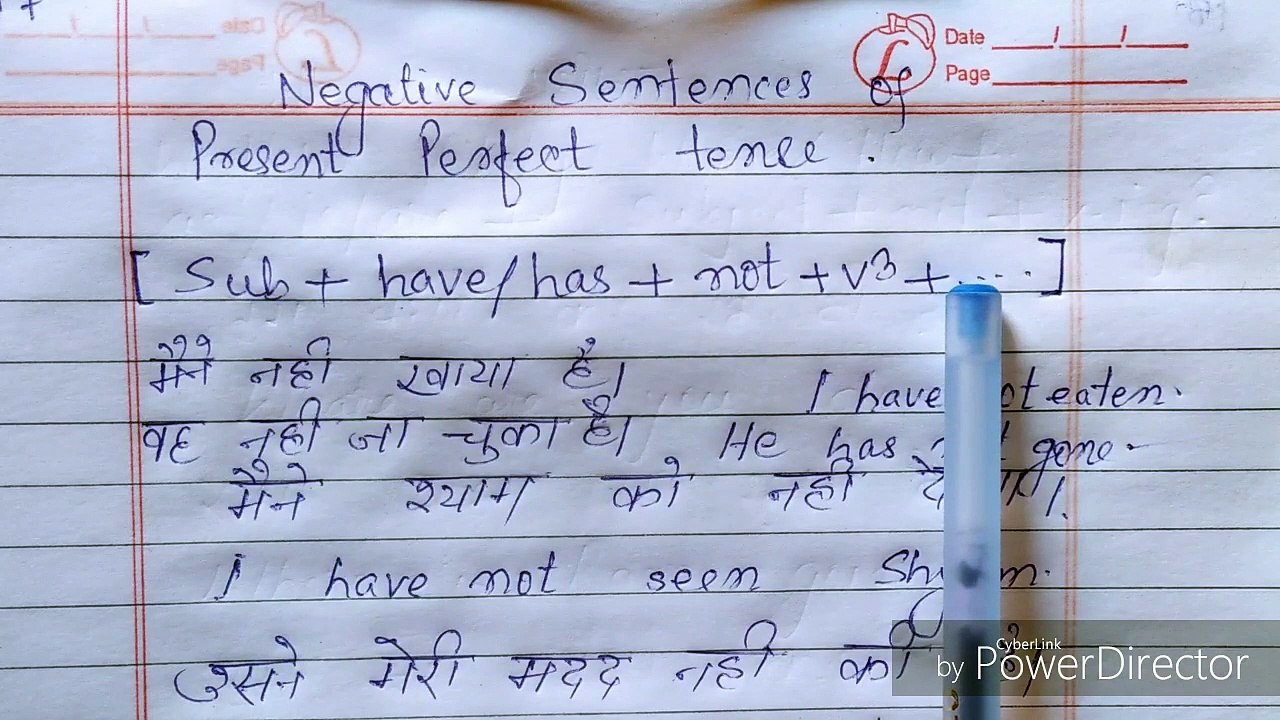 Date
Page
Negative Sentences of
Present Perfect tence.
[ Sub + have/has + not + v3 + .... ]
मैंने नही खाया है।
I have eaten.
वह नही जा चुका है। He has gone.
मैंने श्याम को नही
I have not seen
उसने मेरी मदद नही की
CyberLink
by PowerDirector